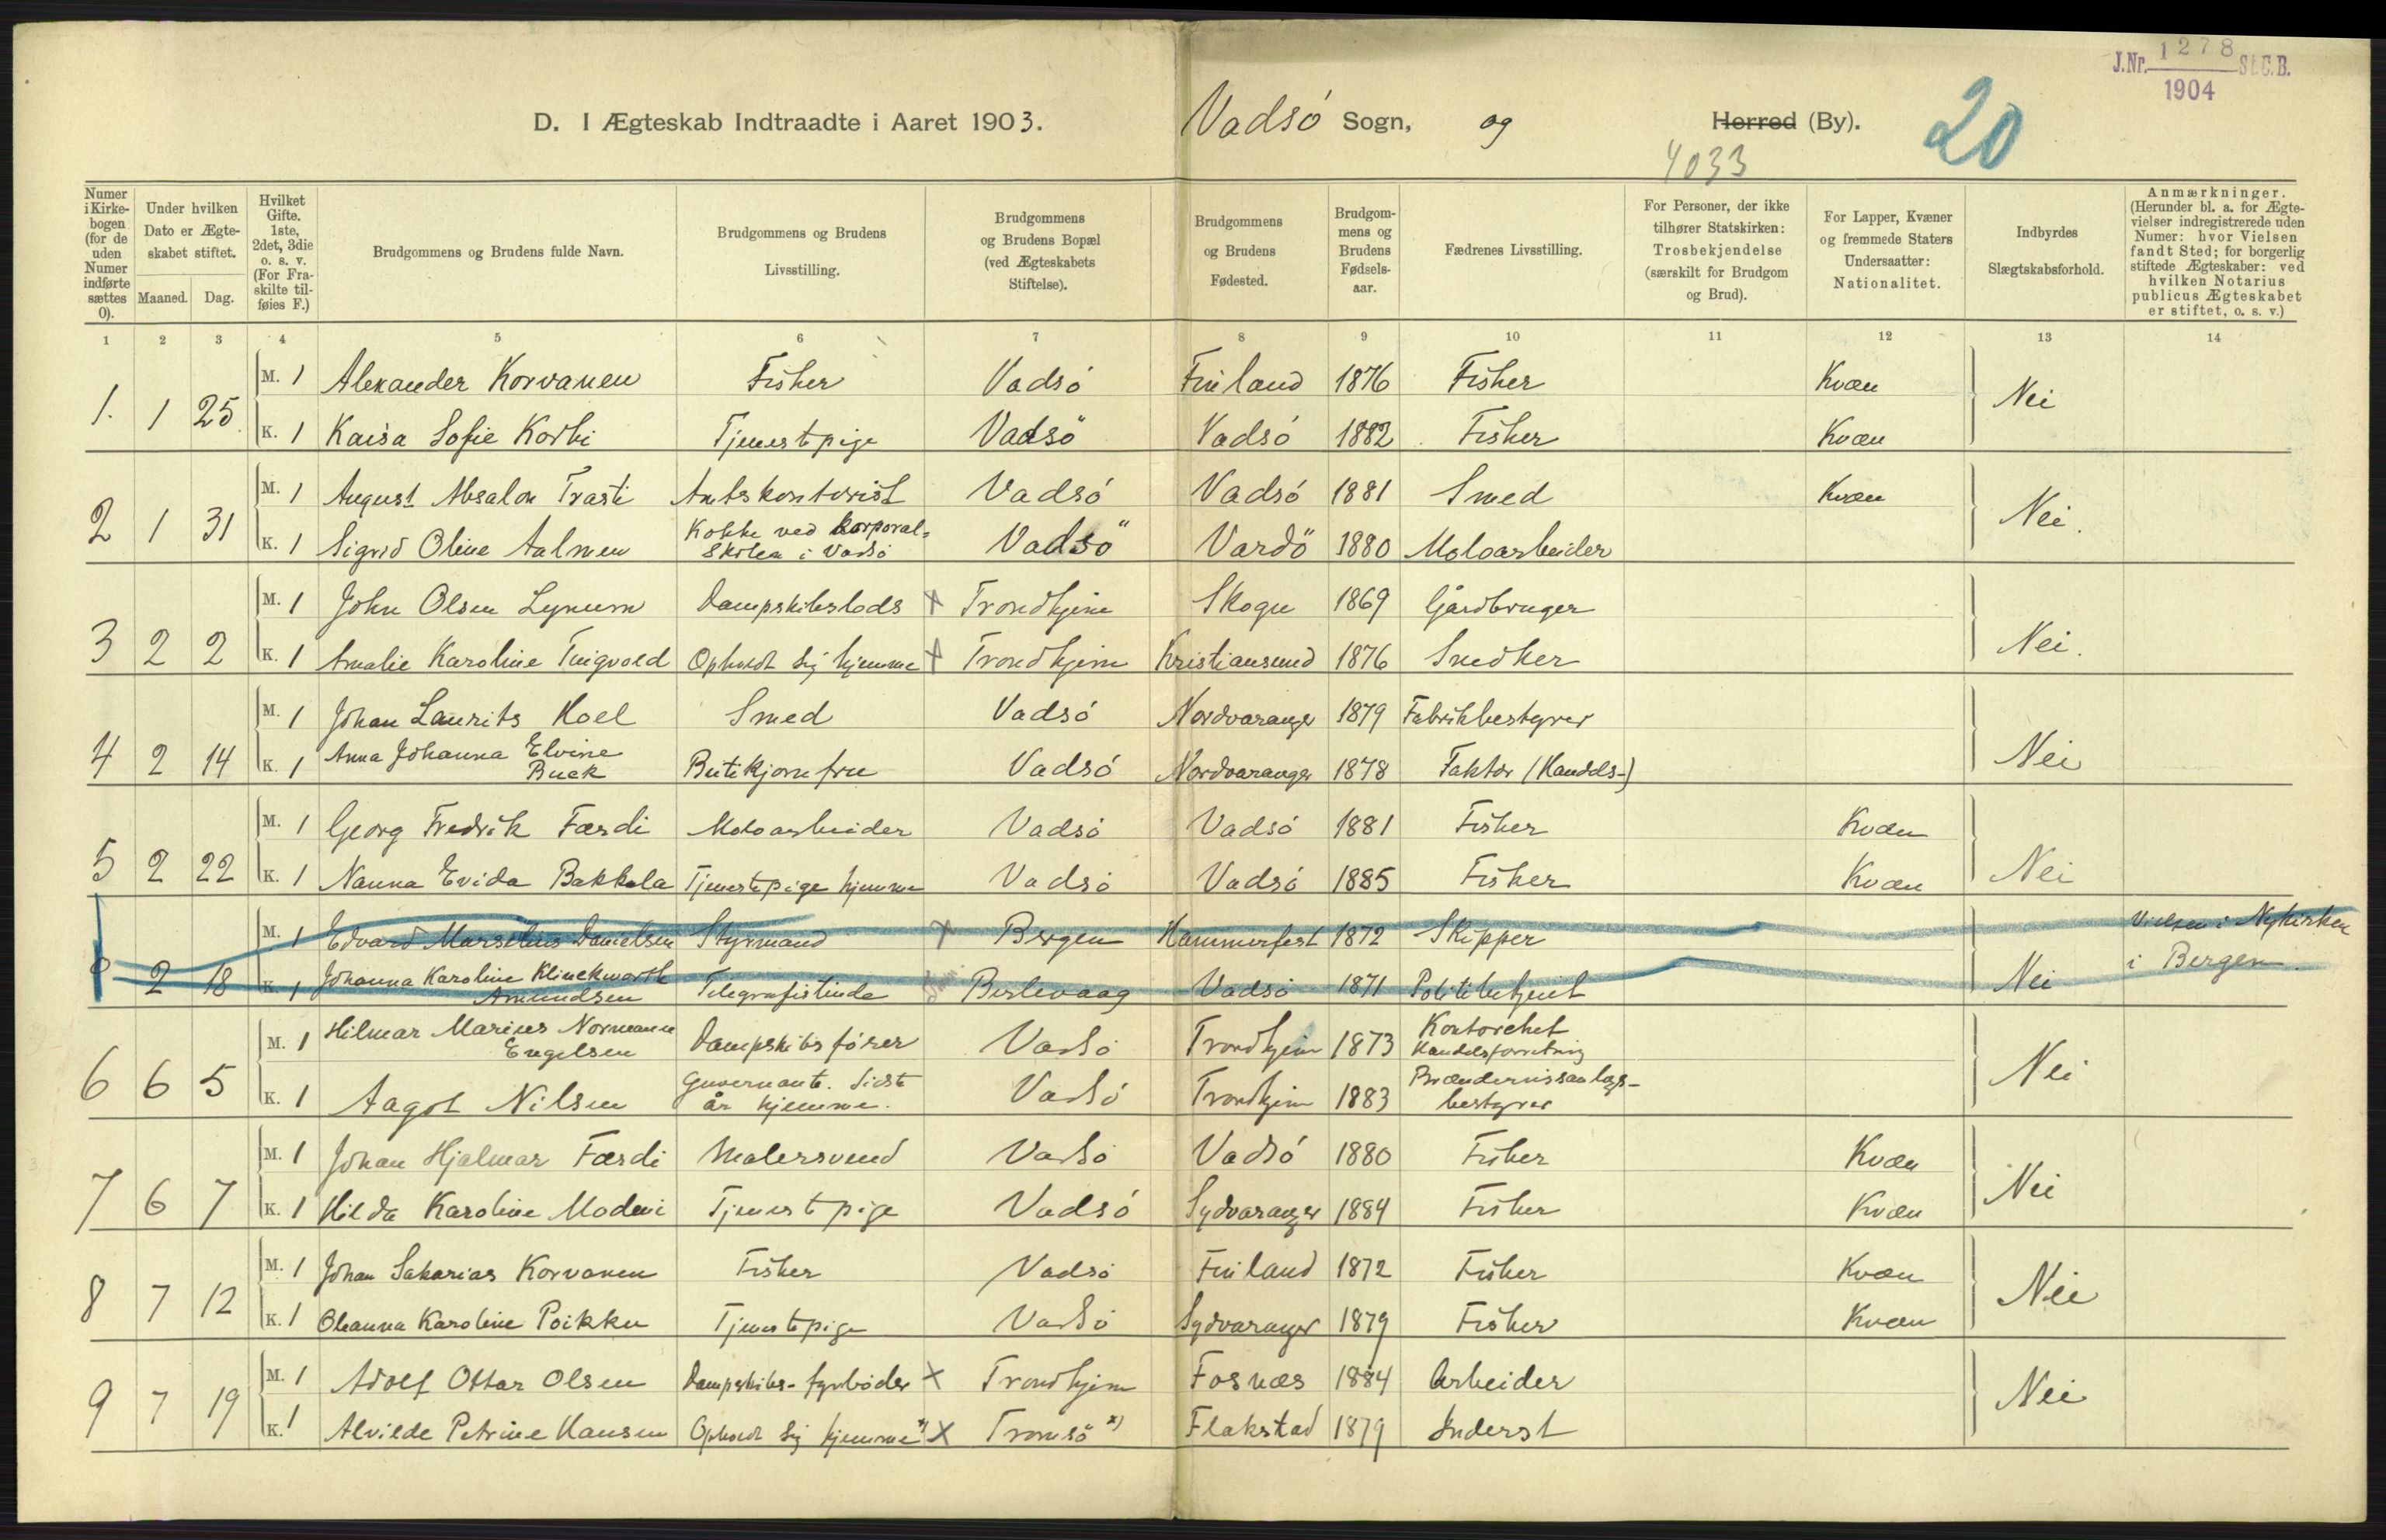 J.Nr. 1278 St.C.B.
1904
D. I Ægteskab Indtraadte i Aaret 1903. Vadsó Sogn, og Herred (By). 20
4033
Numer i Kirkebogen (for de uden Numer indførte sættes 0).
Under hvilken Dato er Ægteskabet stiftet.
Maaned. Dag.
Hvilket Gifte. 1ste, 2det, 3die o. s. v. (For Fraskilte tilføies F.)
Brudgommens og Brudens fulde Navn.
Brudgommens og Brudens Livsstilling.
Brudgommens og Brudens Bopæl (ved Ægteskabets Stiftelse).
Brudgommens og Brudens Fødested.
Brudgommens og Brudens Fødselsaar.
Fædrenes Livsstilling.
For Personer, der ikke tilhører Statskirken: Trosbekjendelse (særskilt for Brudgom og Brud).
For Lapper, Kvæner og fremmede Staters Undersaatter: Nationalitet.
Indbyrdes Slægtskabsforhold.
Anmærkninger. (Herunder bl. a. for Ægtevielser indregistrerede uden Numer: hvor Vielsen fandt Sted; for borgerlig stiftede Ægteskaber: ved hvilken Notarius publicus Ægteskabet er stiftet, o. s. v.)
1 2 3 4 5 6 7 8 9 10 11 12 13 14
1. 1 25. M. 1 Alexander Korvanen Fisker Vadsó Finland 1876 Fisker Kvæn Nei
K. 1 Kaisa Sofie Korbi Tjenestpige Vadsö Vadsó 1882 Fisker Kvæn
2 1 31 M. 1 August Absalon Trasti Amtskontorist Vadsó Vadsó 1881 Smed Kvæn Nei.
K. 1 Sigrid Oline Aalmen Kokke ved korporalskolen i Vadsö Vadsö Vardö 1880 Moloarbeider
3 2 2 M. 1 John Olsen Lynum Dampskibslods x Trondhjem Skogn 1869 Gårdbruger Nei.
K. 1 Amalie Karoline Tingvold Opholdt sig hjemme x Trondhjem Kristiansund 1876 Snedker
4 2 14 M. 1 Johan Laurits Hoel Smed Vadsó Nordvaranger 1879 Fabrikbestyrer Nei
K. 1 Anna Johanna Elvine Buck Butikjomfru Vadsó Nordvaranger 1878 Faktor (Handels-)
5 2 22 M. 1 Georg Fredrik Færdi Moloarbeider Vadsó Vadsó 1881 Fisker Kvæn Nei
K. 1 Nanna Evida Bakkela Tjenestpige hjemme Vadsó Vadsó 1885 Fisker Kvæn
0 2 18 M. 1 Edvard Marselius Danielsen Styrmand x Bergen Hammerfest 1872 Skipper Nei Vielsen i Nykirken i Bergen.
K. 1 Johanna Karoline Klinckworth Amundsen Telegrafistinde Berlevaag Vadsó 1871 Politibetjent
6 6 5 M. 1 Hilmar Marius Normann Engelsen Dampskibsfórer Vadsó Trondhjem 1873 Kontorchef Handelsforretning Nei
K. 1 Aagot Nilsen Guvernante. Sidste år hjemme. Vadsó Trondhjem 1883 Brænderiesanlægsbestyrer
7 6 7 M. 1 Johan Hjalmar Færdi Malersvend Vadsó Vadsó 1880 Fisker Kvæn Nei
K. 1 Hilda Karoline Modeni Tjenestpige Vadsó Sydvaranger 1884 Fisker Kvæn
8 7 12 M. 1 Johan Sakarias Korvanen Fisker Vadsó Finland 1872 Fisker Kvæn Nei
K. 1 Oleanna Karoline Poikku Tjenestpige Vadsó Sydvaranger 1879 Fisker Kvæn
9 7 19 M. 1 Adolf Ottar Olsen Dampskibs-fyrbóder x Trondhjem Fosnæs 1884 Arbeider Nei
K. 1 Alvilde Petrine Hansen Opholdt sig hjemme x) x Tromsö x) Flakstad 1879 Inderst